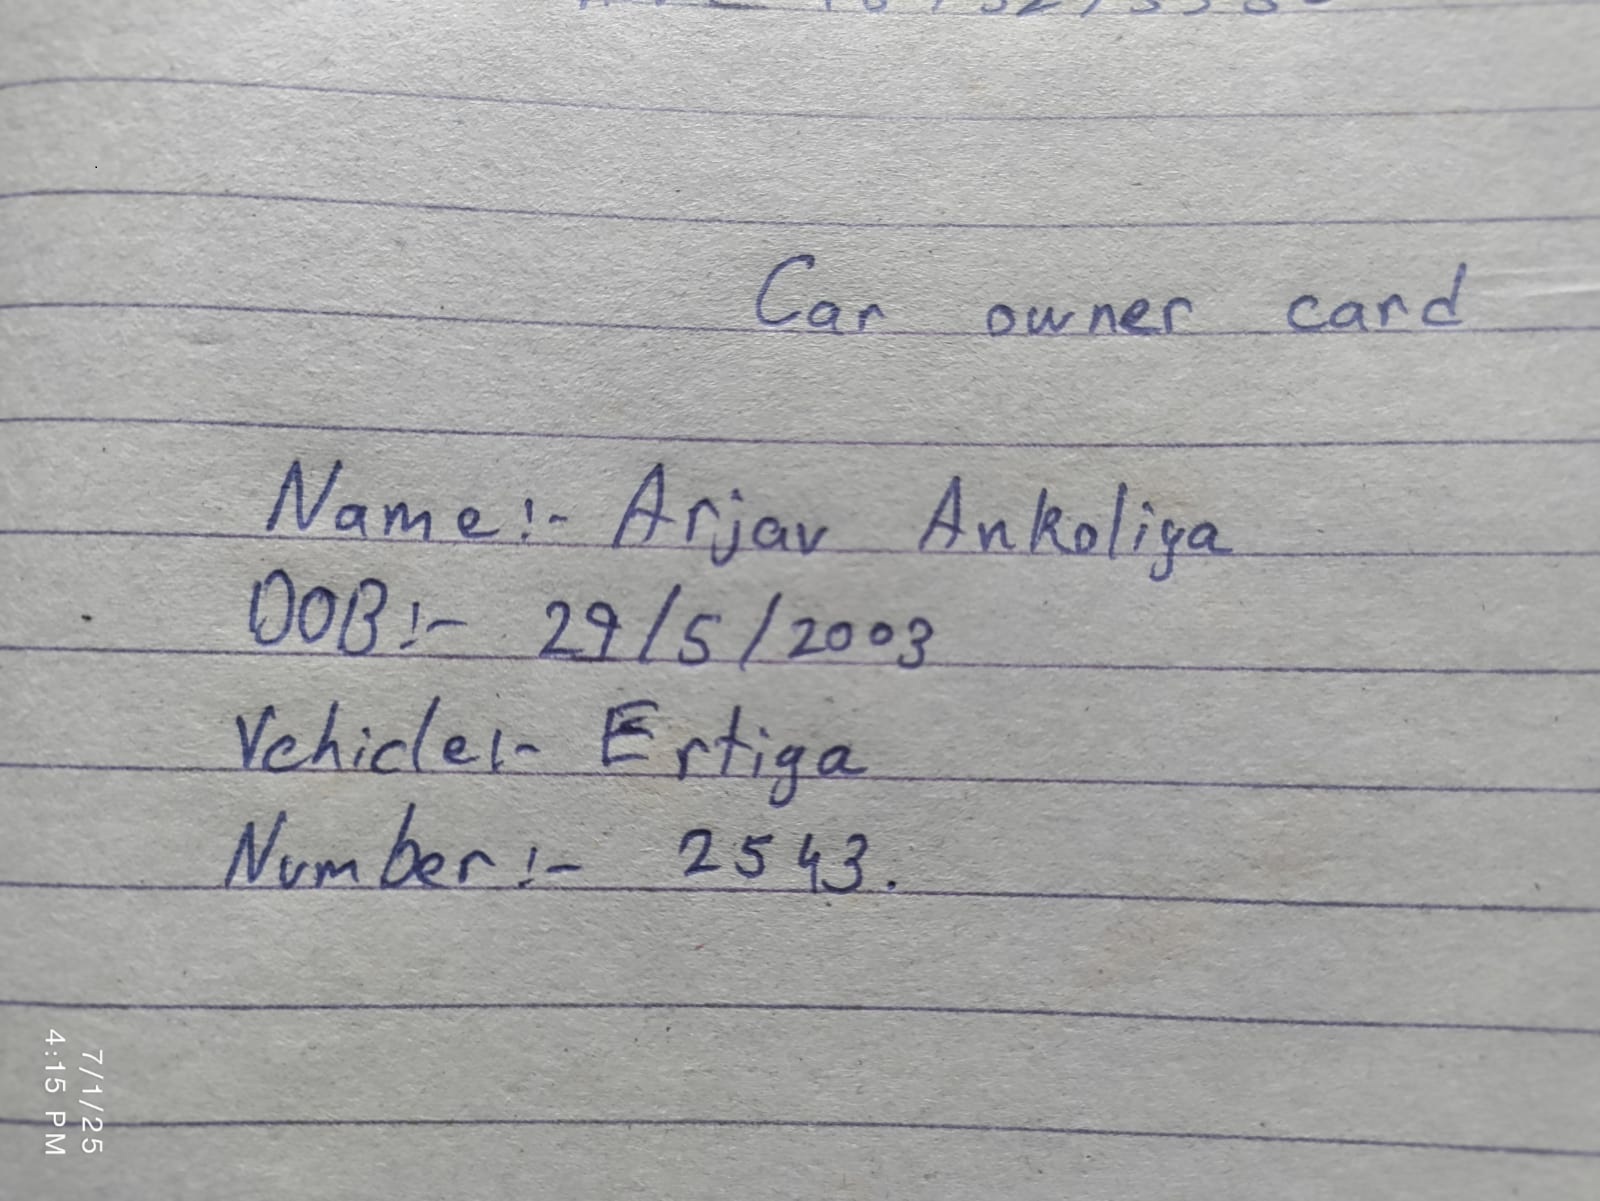 Car owner card
Name:- Arjav Ankoliya
DOB:- 29/5/2003
Vehicle:- Ertiga
Number:- 2543.
7/1/25
4:15 PM